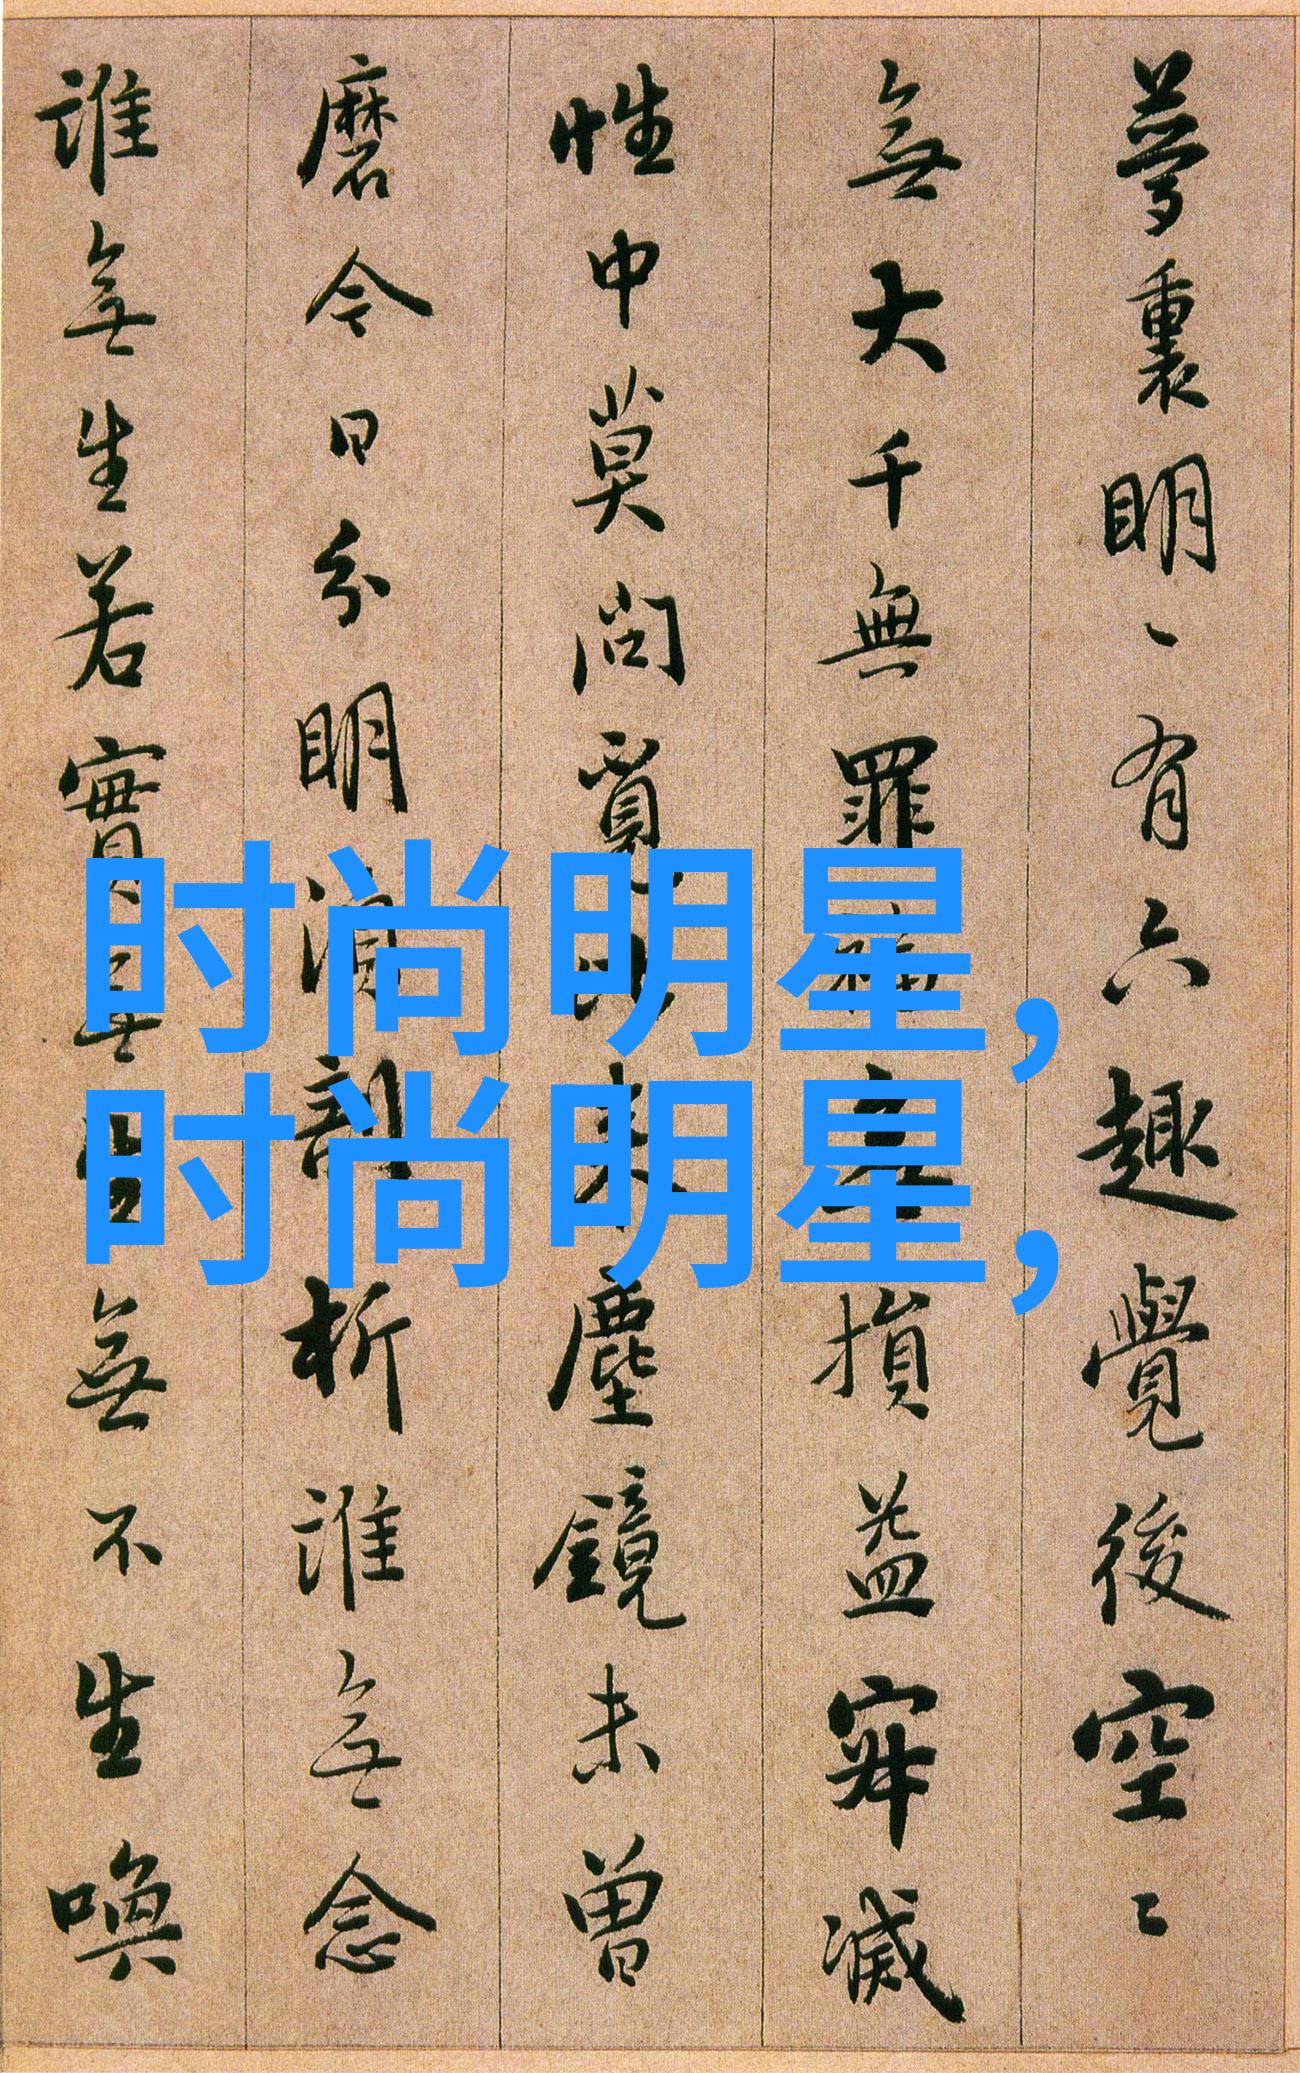 夢裏明〻有六趣覺後空〻
無大千無罪福無損益寂滅
性中莫問覓比來塵鏡未曾
磨今日分明須剖析誰無念
誰無生若實無生無不生喚
时尚明星，
时尚明星，